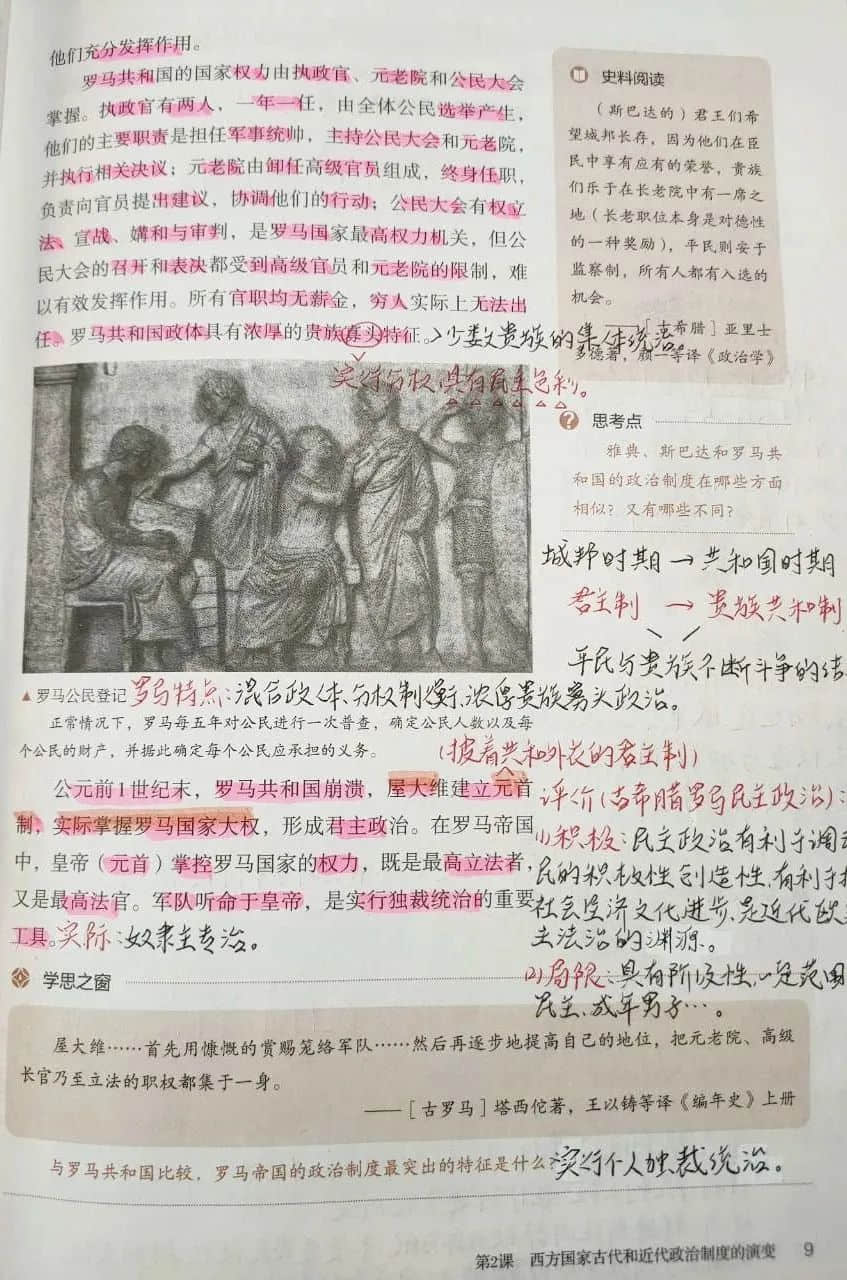 他们充分发挥作用。
罗马共和国的国家权力由执政官、元老院和公民大会
掌握。执政官有两人，一年一任，由全体公民选举产生，
他们的主要职责是担任军事统帅，主持公民大会和元老院，
并执行相关决议；元老院由卸任高级官员组成，终身任职，
负责向官员提出建议，协调他们的行动；公民大会有权立
法、宣战、媾和与审判，是罗马国家最高权力机关，但公
民大会的召开和表决都受到高级官员和元老院的限制，难
以有效发挥作用。所有官职均无薪金，穷人实际上无法出
任。罗马共和国政体具有浓厚的贵族寡头特征。
少数贵族的集体统治。
实行分权，具有民主色彩。
史料阅读
（斯巴达的）君王们希
望城邦长存，因为他们在臣
民中享有应有的荣誉，贵族
们乐于在长老院中有一席之
地（长老职位本身是对德性
的一种奖励），平民则安于
监察制，所有人都有入选的
机会。
——［古希腊］亚里士
多德著，颜一等译《政治学》
思考点
雅典、斯巴达和罗马共
和国的政治制度在哪些方面
相似？又有哪些不同？
城邦时期→共和国时期
君主制 → 贵族共和制
平民与贵族不断斗争的结
▲罗马公民登记
罗马特点：混合政体、分权制衡、浓厚贵族寡头政治。
正常情况下，罗马每五年对公民进行一次普查，确定公民人数以及每
个公民的财产，并据此确定每个公民应承担的义务。
（披着共和外衣的君主制）
公元前1世纪末，罗马共和国崩溃，屋大维建立元首
制，实际掌握罗马国家大权，形成君主政治。在罗马帝国
中，皇帝（元首）掌控罗马国家的权力，既是最高立法者，
又是最高法官。军队听命于皇帝，是实行独裁统治的重要
工具。
实际：奴隶主专治。
评价（古希腊罗马民主政治）：
(1)积极：民主政治有利于调动
民的积极性创造性，有利于
社会经济文化进步，是近代欧
主法治的渊源。
(2)局限：具有阶级性，一定范围
民主、成年男子…。
学思之窗
屋大维……首先用慷慨的赏赐笼络军队……然后再逐步地提高自己的地位，把元老院、高级
长官乃至立法的职权都集于一身。
——［古罗马］塔西佗著，王以铸等译《编年史》上册
与罗马共和国比较，罗马帝国的政治制度最突出的特征是什么？
实行个人独裁统治。
第2课 西方国家古代和近代政治制度的演变 9